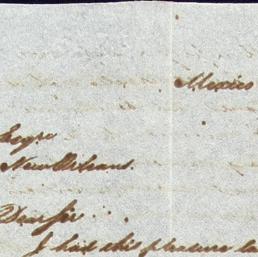 Mexico
Esqre
New Orleans.
Dear Sir
I had this pleasure